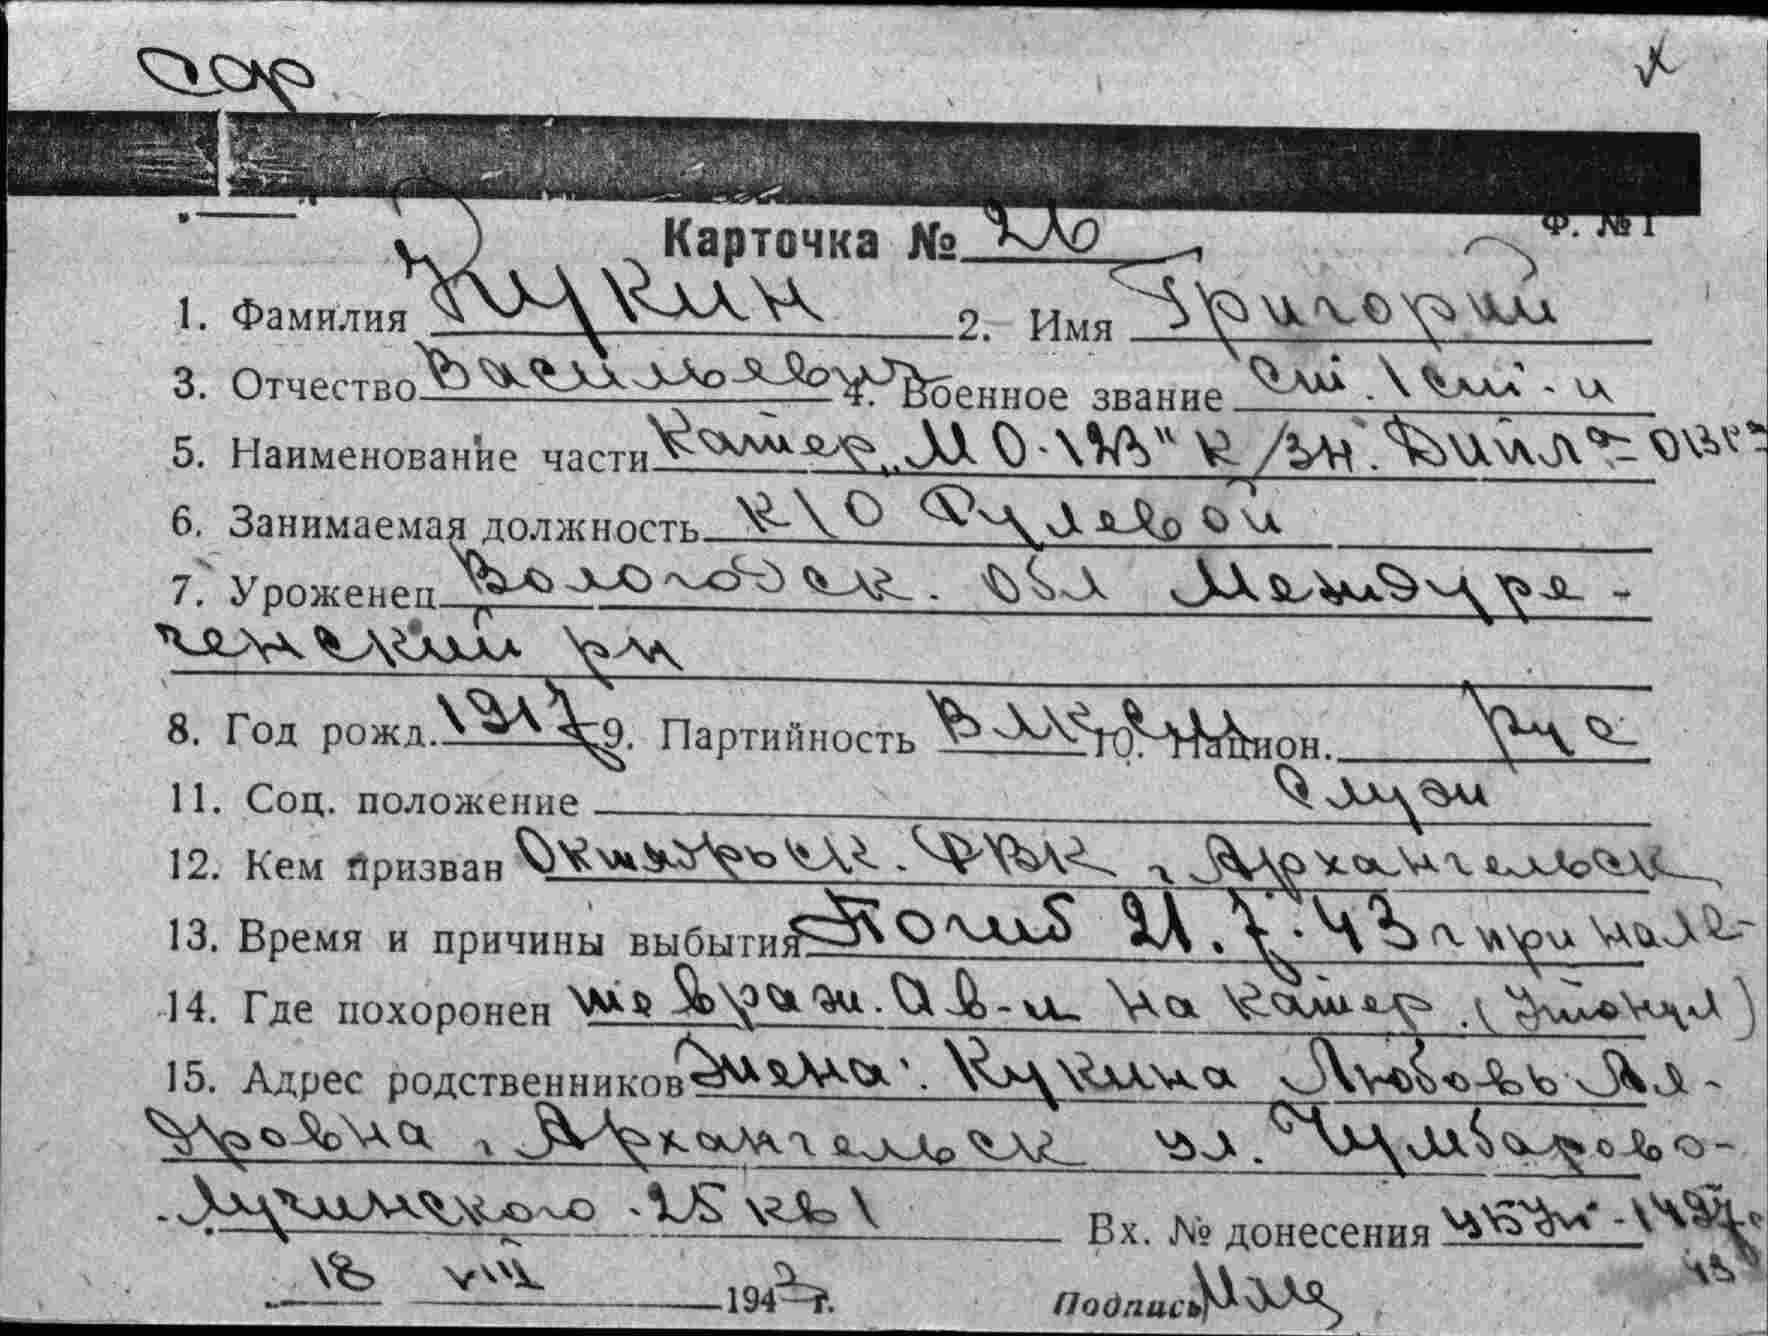 Ф. № 1
Карточка № 26
1. Фамилия Кукин 2. Имя Григорий
3. Отчество Васильевич 4. Военное звание
5. Наименование части Катер „МО-123"
6. Занимаемая должность к/о Рулевой
7. Уроженец Вологодск. обл Междуре-
ченский рн
8. Год рожд. 1917 9. Партийность ВЛКСМ 10. Национ. рус
11. Соц. положение Служ
12. Кем призван Октябрьск. РВК г Архангельск
13. Время и причины выбытия Погиб 21.7.43 г при нале-
14. Где похоронен те враж. ав-и на катер. (Утонул)
15. Адрес родственников Жена: Кукина Любовь
г Архангельск ул. Чумбарово-
Лучинского 25 кв 1 Вх. № донесения
18 VIII 1943 г. Подпись